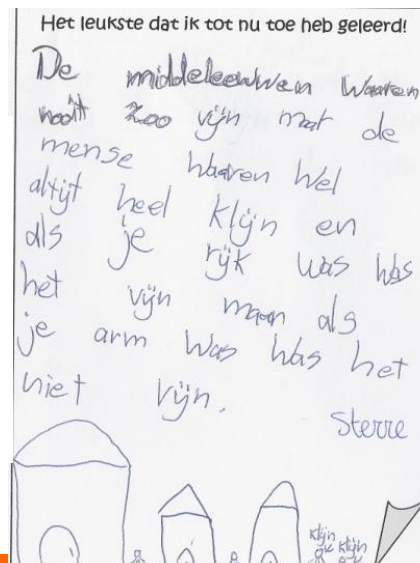 Het leukste dat ik tot nu toe heb geleerd!
De middeleeuwen waaren
nooit zoo vijn mar de
mense waaren wel
altijt heel klijn en
als je rijk was was
het vijn maar als
je arm was was het
niet vijn.
Sterre
klijn klijn